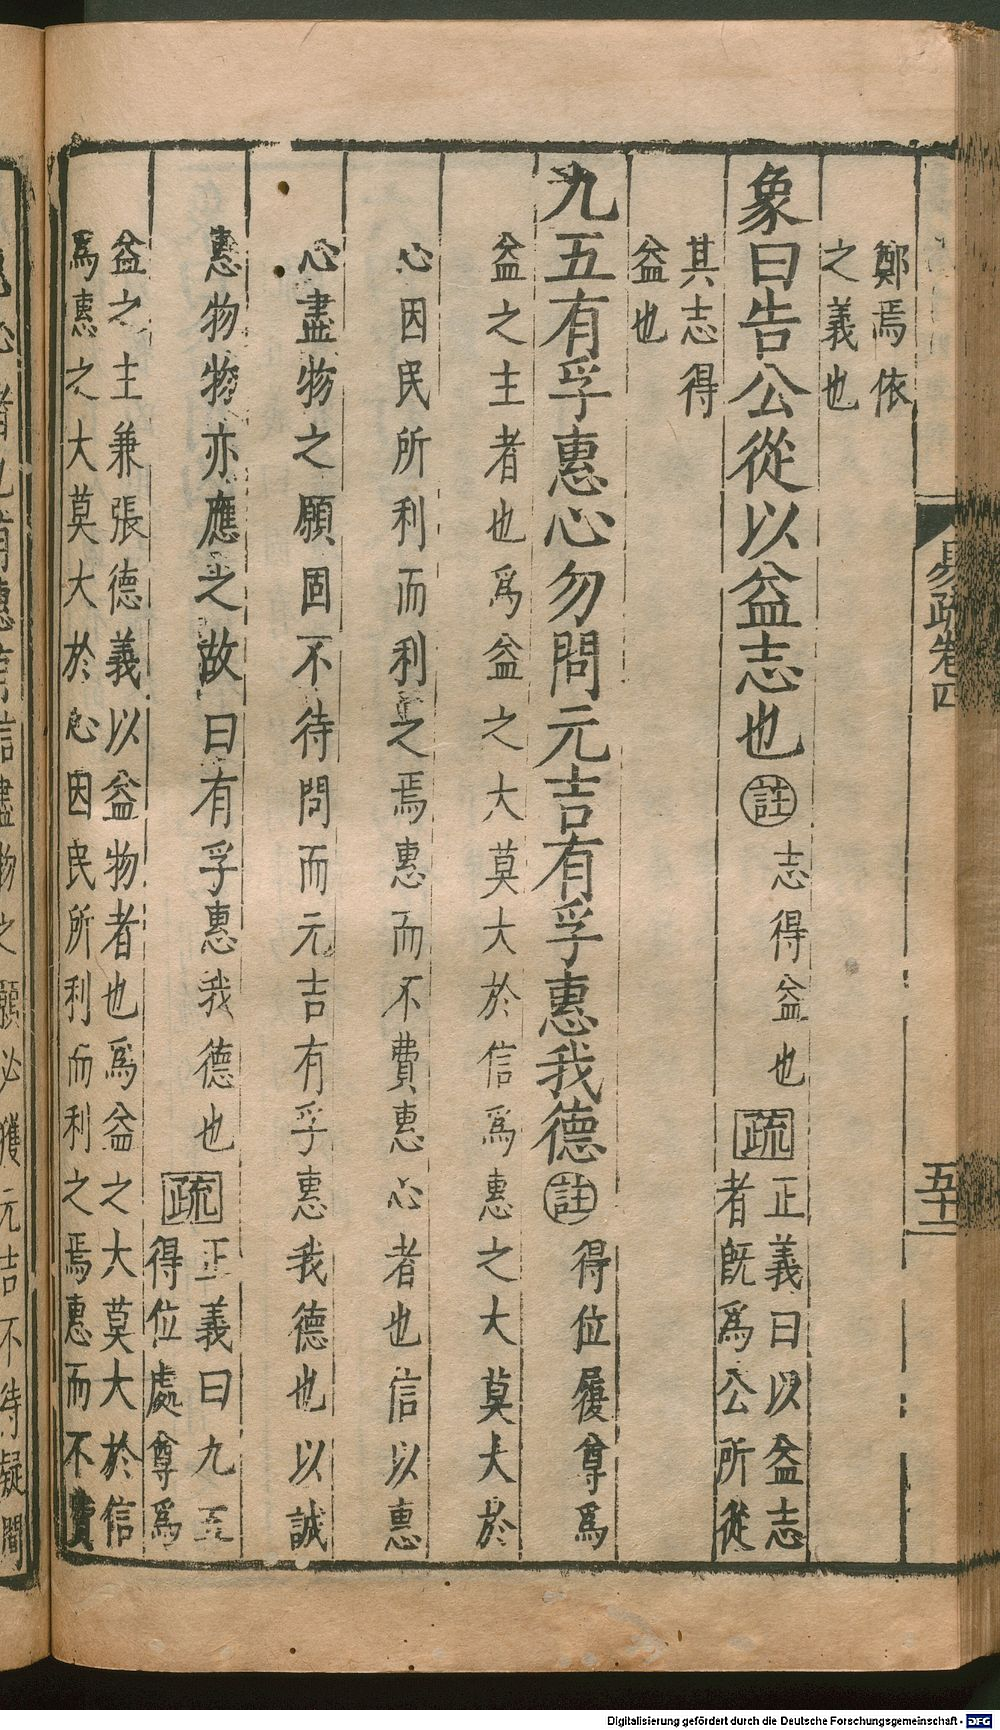 易疏卷四
五十二
鄭焉依
之義也
象曰告公從以益志也註志得益也疏正義曰以益志
者既為公所從
其志得
益也
九五有孚惠心勿問元吉有孚惠我德註得位履尊爲
益之主者也爲益之大莫大於信爲惠之大莫大於
心因民所利而利之焉惠而不費惠心者也信以惠
心盡物之願固不待問而元吉有孚惠我德也以誠
惠物物亦應之故曰有孚惠我德也疏正義曰九五
得位處尊爲
益之主兼張德義以益物者也爲益之大莫大於信
爲惠之大莫大於心因民所利而利之焉惠而不費
有惠有信盡物之願必獲元吉不待疑問
Digitalisierung gefördert durch die Deutsche Forschungsgemeinschaft - DFG